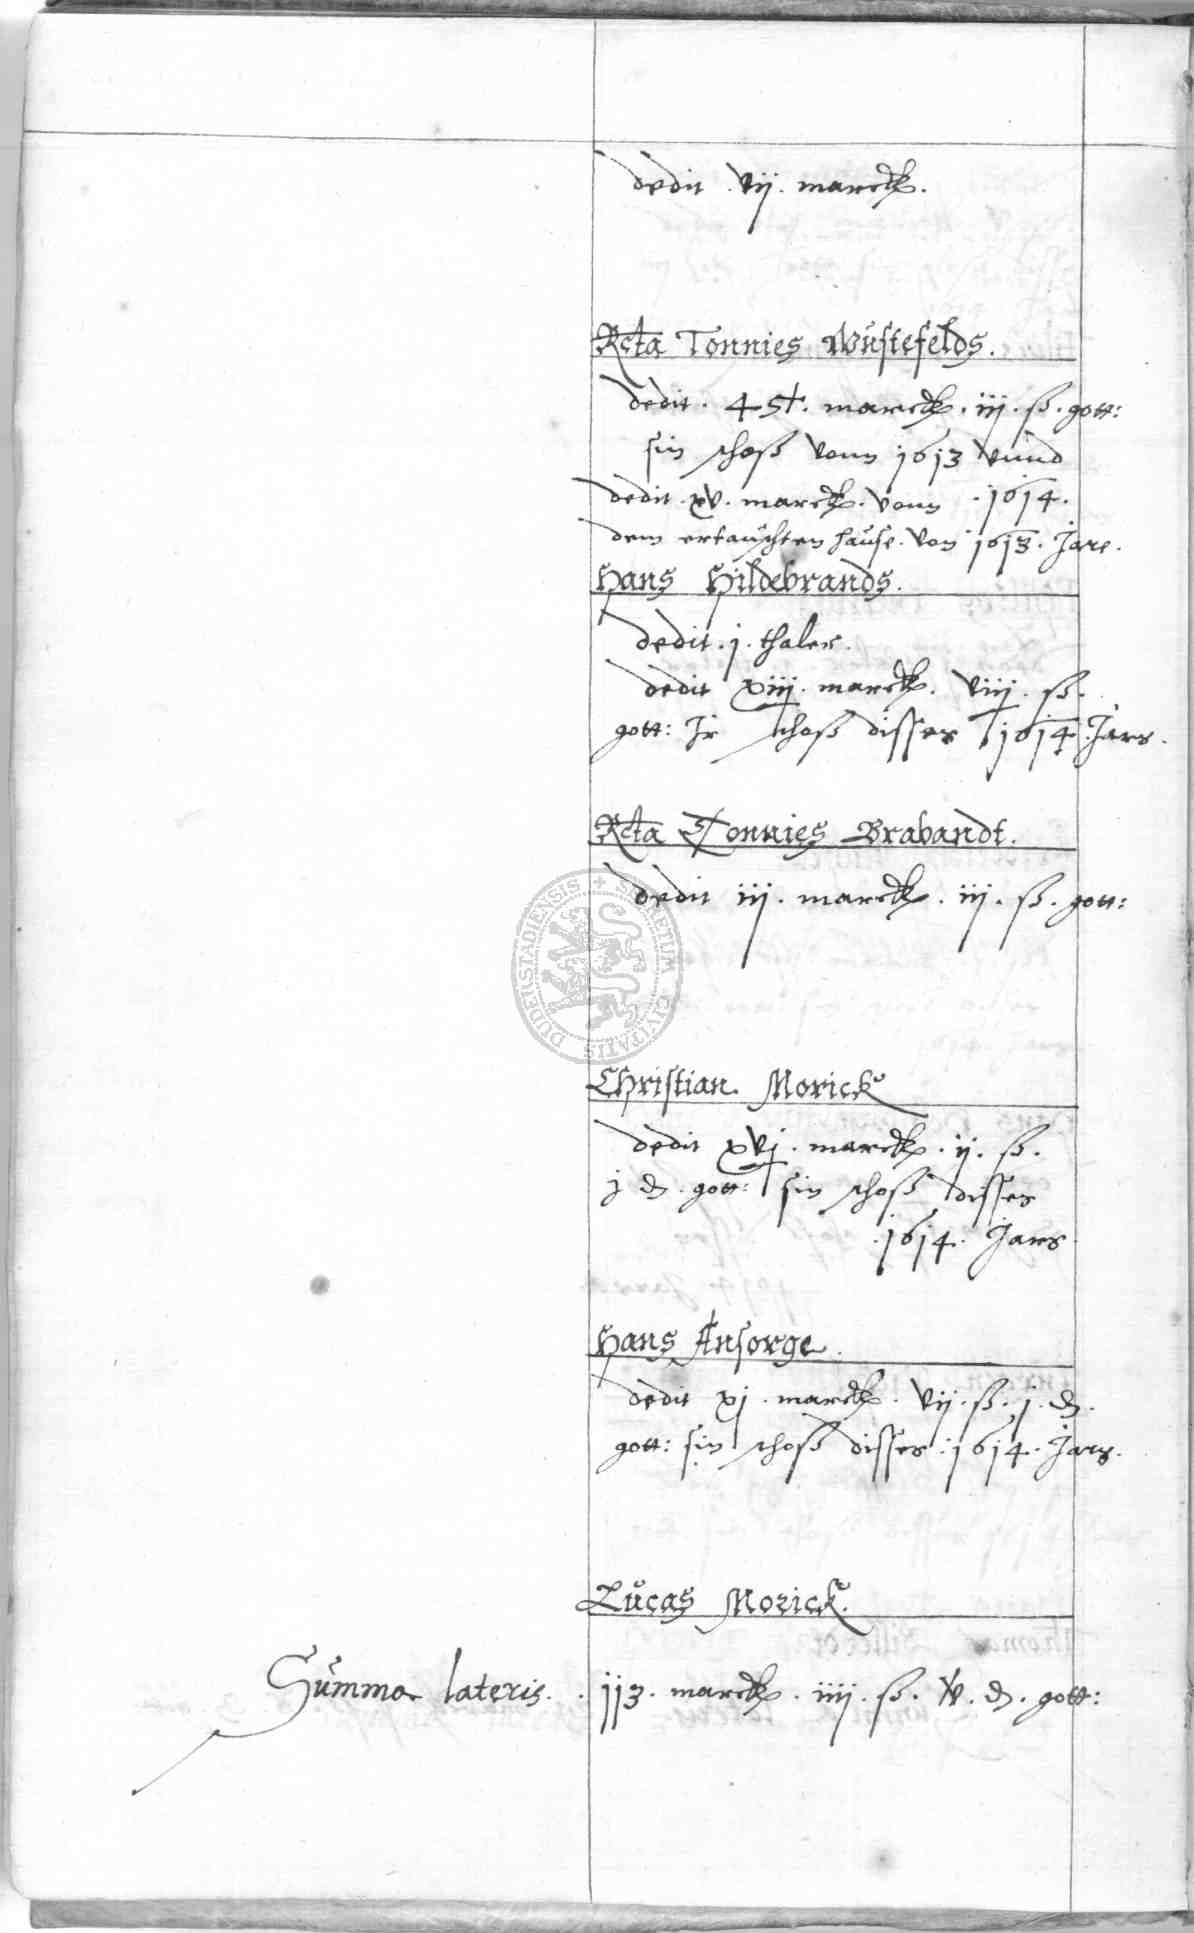 dedit . vij . marck .
Rcta Tonnies Wüstefelds .
dedit . 45 . marck . iij . ß . gott :
sin schoß vonn 1613 vnnd
dedit . xv . marck . vonn . 1614 .
dem ertauschten hause . von 1613 . Jare .
Hans Hildebrands .
dedit . j . thaler .
dedit xiij . marck . viij . ß .
gott : Jr schoß disses 1614 Jars .
Rcta Tonnies Brabandt .
dedit iij . marck . iij . ß . gott :
DUDERSTADIENSIS + SECRETUM CIVITATIS
Christian Morick
dedit xvj . marck . ij . ß .
j d . gott : sin schoß disses
. 1614 . Jars
Hans Ansorge .
dedit xj . marck . vij . ß . j . d .
gott : sin schoß disses . 1614 . Jars .
Lücas Morick .
Summa lateris . . 113 . marck . iiij . ß . v . d . gott :